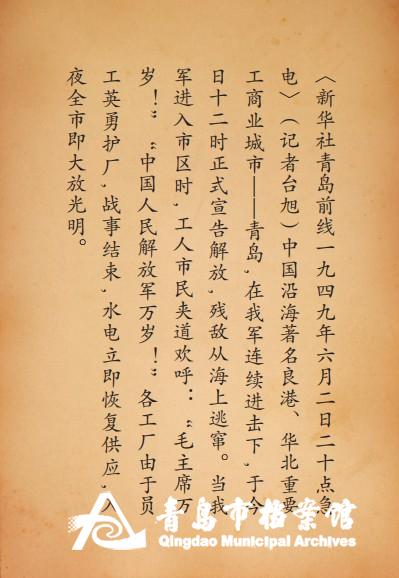 〈新华社青岛前线一九四九年六月二日二十点急
电〉（记者台旭）中国沿海著名良港、华北重要
工商业城市——青岛，在我军连续进击下，于今
日十二时正式宣告解放，残敌从海上逃窜。当我
军进入市区时，工人市民夹道欢呼：“毛主席万
岁！”“中国人民解放军万岁！”各工厂由于员
工英勇护厂，战事结束，水电立即恢复供应，入
夜全市即大放光明。
青岛市档案馆
Qingdao Municipal Archives